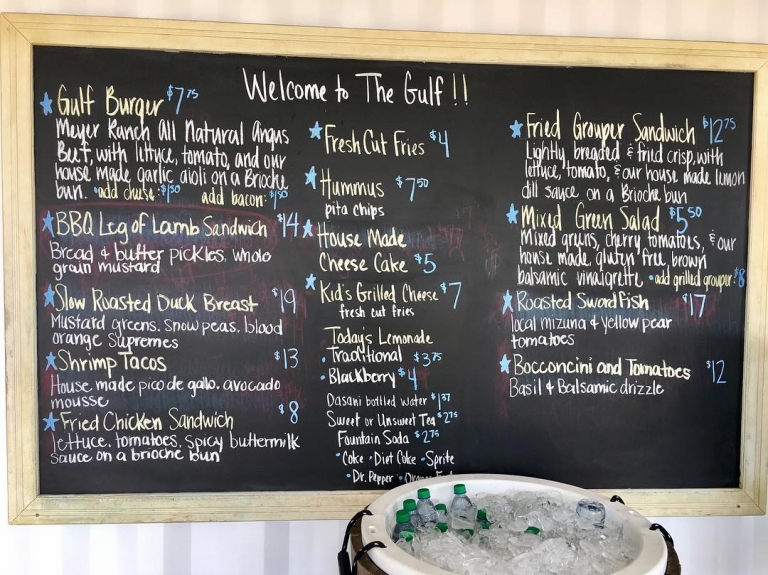 Welcome to The Gulf !!
Gulf Burger $7.75
Meyer Ranch All Natural Angus
Beef, with lettuce, tomato, and our
house made garlic aioli on a Brioche
bun. • add cheese: $1.50 add bacon: $1.50
BBQ Leg of Lamb Sandwich $14
Bread & butter pickles, whole
grain mustard
Slow Roasted Duck Breast $19
Mustard greens, snow peas, blood
orange supremes
Shrimp Tacos $13
House made pico de gallo, avocado
mousse
Fried Chicken Sandwich $8
lettuce, tomatoes, spicy buttermilk
sauce on a brioche bun
Fresh Cut Fries $4
Hummus $7.50
pita chips
House Made
Cheese Cake $5
Kid's Grilled Cheese $7
fresh cut fries
Today's Lemonade
• Traditional $3.75
• Blackberry $4
Dasani bottled water $1.37
Sweet or Unsweet Tea $2.75
Fountain Soda $2.75
• Coke • Diet Coke • Sprite
• Dr. Pepper •
Fried Grouper Sandwich $12.75
Lightly breaded & fried crisp, with
lettuce, tomato, & our house made lemon
dill sauce on a Brioche bun
Mixed Green Salad $5.50
Mixed greens, cherry tomatoes, & our
house made gluten free brown
balsamic vinaigrette • add grilled grouper: $8
Roasted Swordfish $17
local mizuna & yellow pear
tomatoes
Bocconcini and Tomatoes $12
Basil & Balsamic drizzle